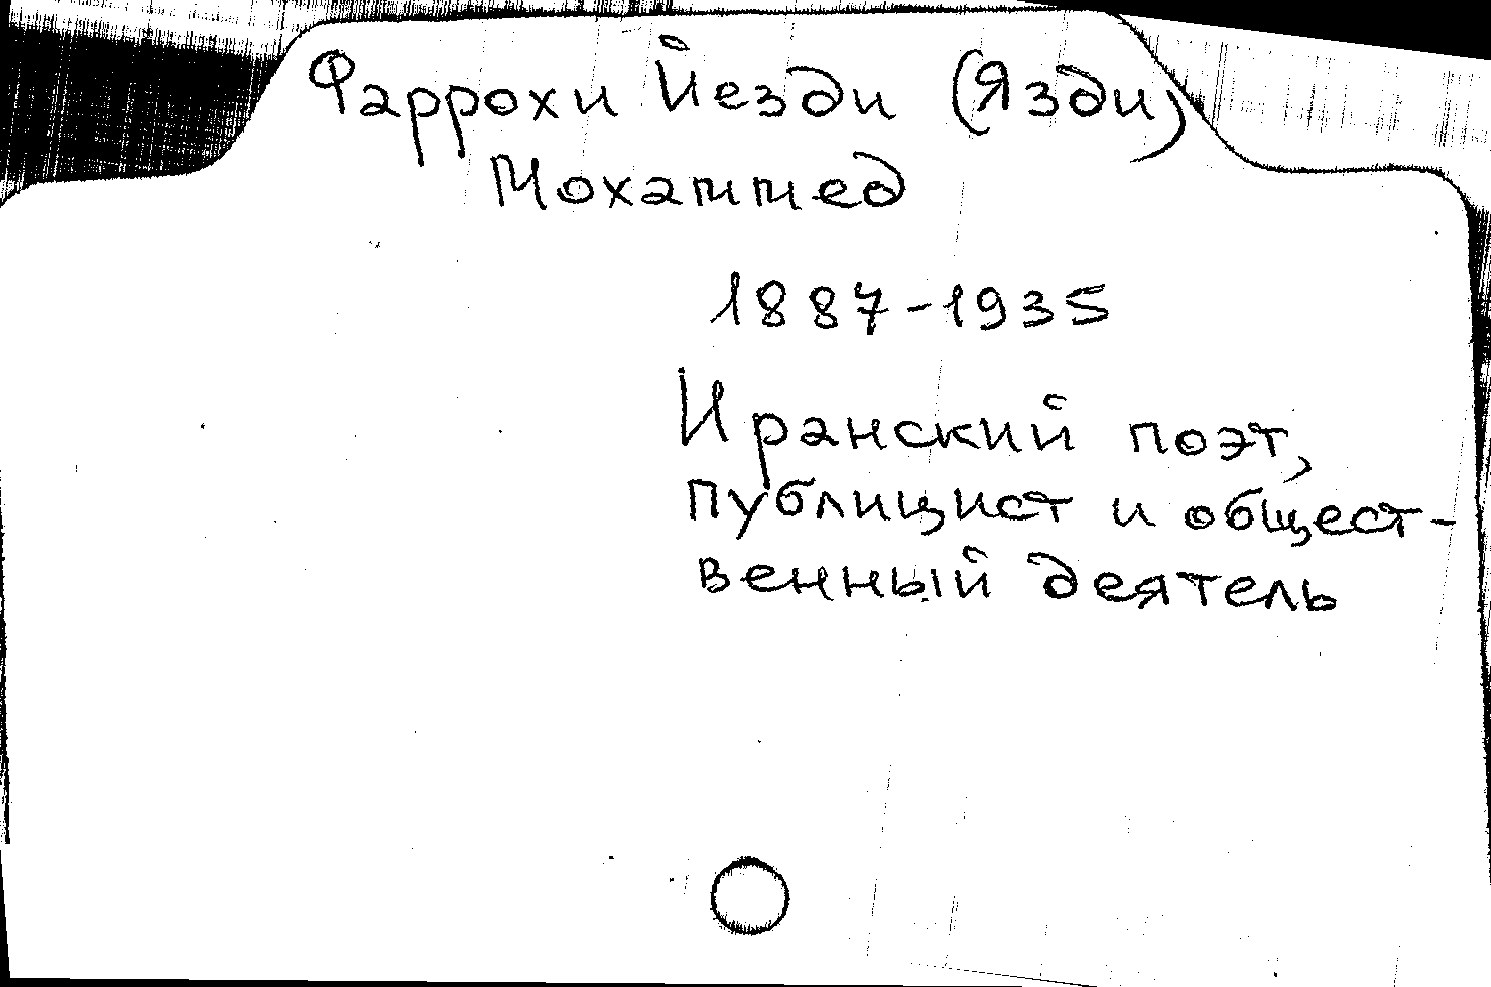 Фаррохи Йезди (Язди)
Мохаммед
1887-1935
Иранский поэт,
публицист и общест-
венный деятель